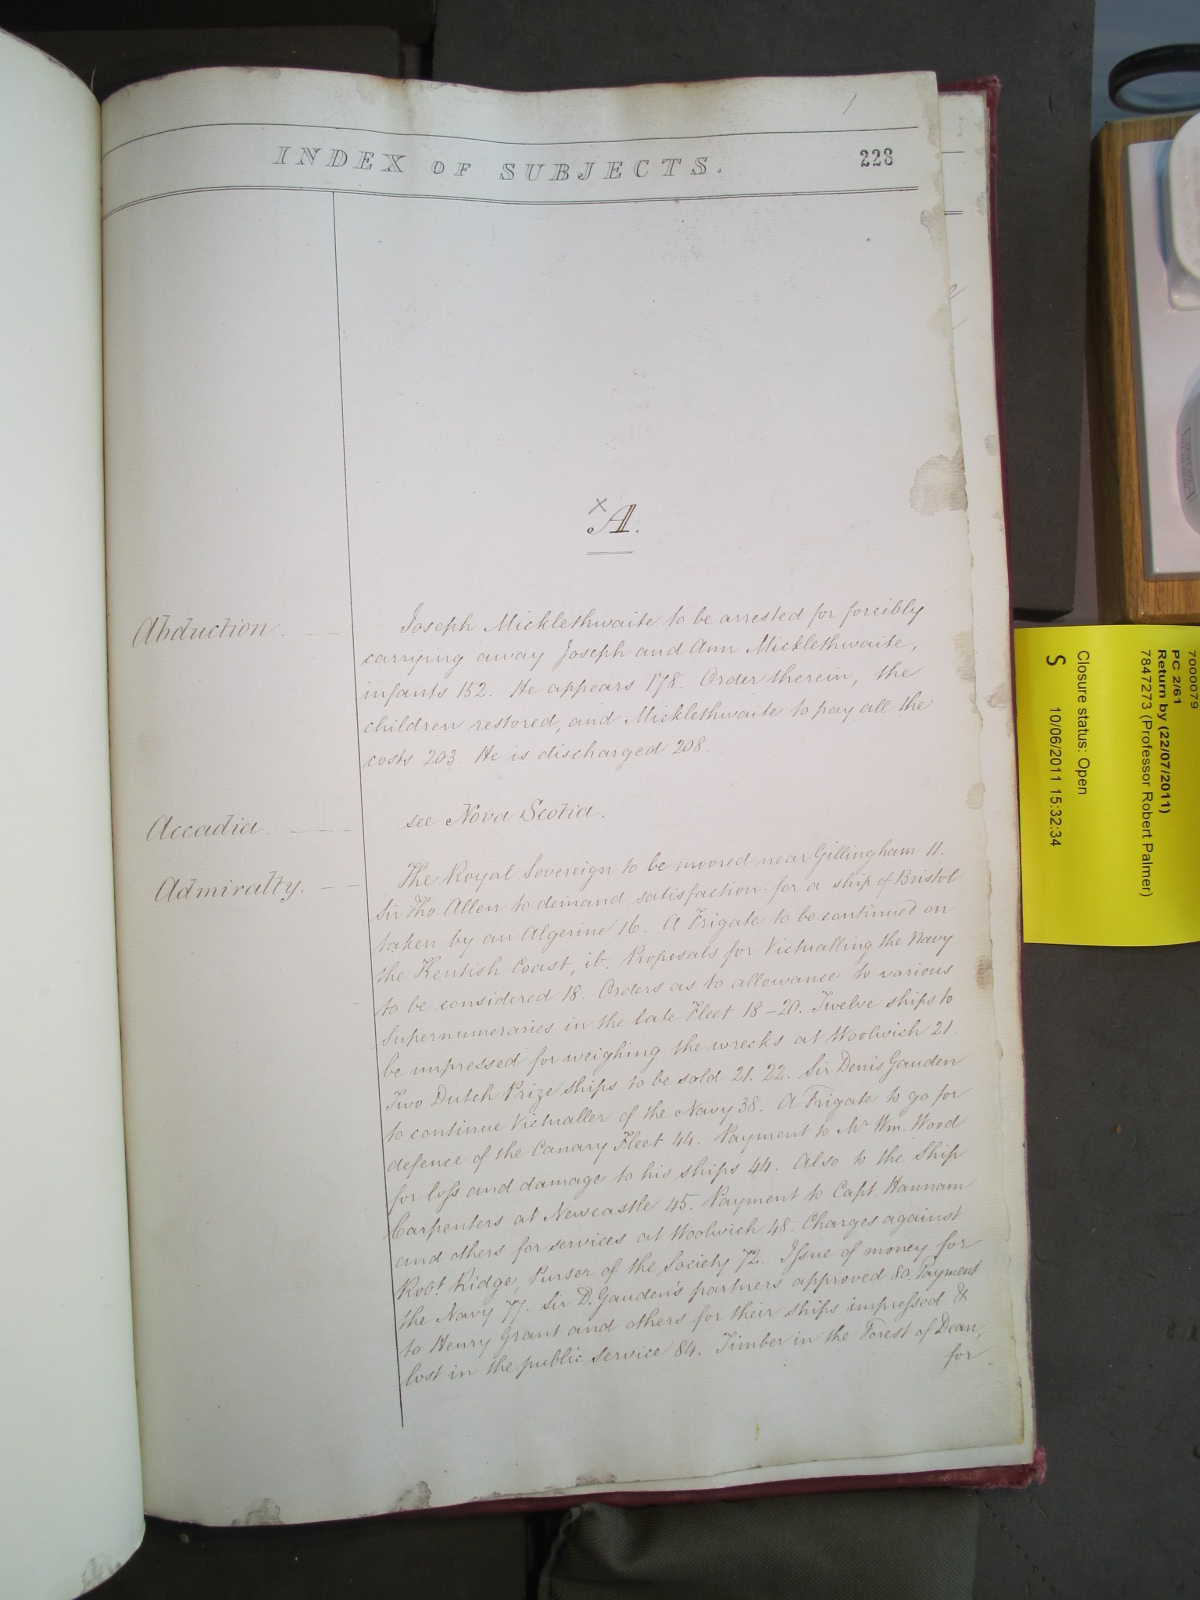 1
INDEX OF SUBJECTS.
228
× A.
Abduction.
Joseph Micklethwaite to be arrested for forcibly
carrying away Joseph and Ann Micklethwaite,
infants 152. He appears 178. Order therein, the
children restored, and Micklethwaite to pay all the
costs 203. He is discharged 208.
Accadia.
see Nova Scotia.
Admiralty.
The Royal Sovereign to be moored near Gillingham 11.
Sir Tho Allen to demand satisfaction for a ship of Bristol
taken by an Algerine 16. A Frigate to be continued on
the Kentish Coast, ib. Proposals for Victualling the Navy
to be considered 18. Orders as to allowance to various
Supernumeraries in the late Fleet 18-20. Twelve ships to
be impressed for weighing the wrecks at Woolwich 21.
Two Dutch Prize ships to be sold 21. 22. Sir Denis Gauden
to continue Victualler of the Navy 38. A Frigate to go for
defence of the Canary Fleet 44. Payment to Mr Wm. Wood
for loss and damage to his ships 44. Also to the Ship
Carpenters at Newcastle 45. Payment to Capt. Hannam
and others for services at Woolwich 48. Charges against
Robt Ridge, Purser of the Society 72. Issue of money for
the Navy 77. Sir D. Gauden's partners approved 80. Payment
to Henry Grant and others for their ships impressed &
lost in the public service 84. Timber in the Forest of Dean,
for
7000079
PC 2/61
Return by (22/07/2011)
7847273 (Professor Robert Palmer)
Closure status: Open
S 10/06/2011 15:32:34